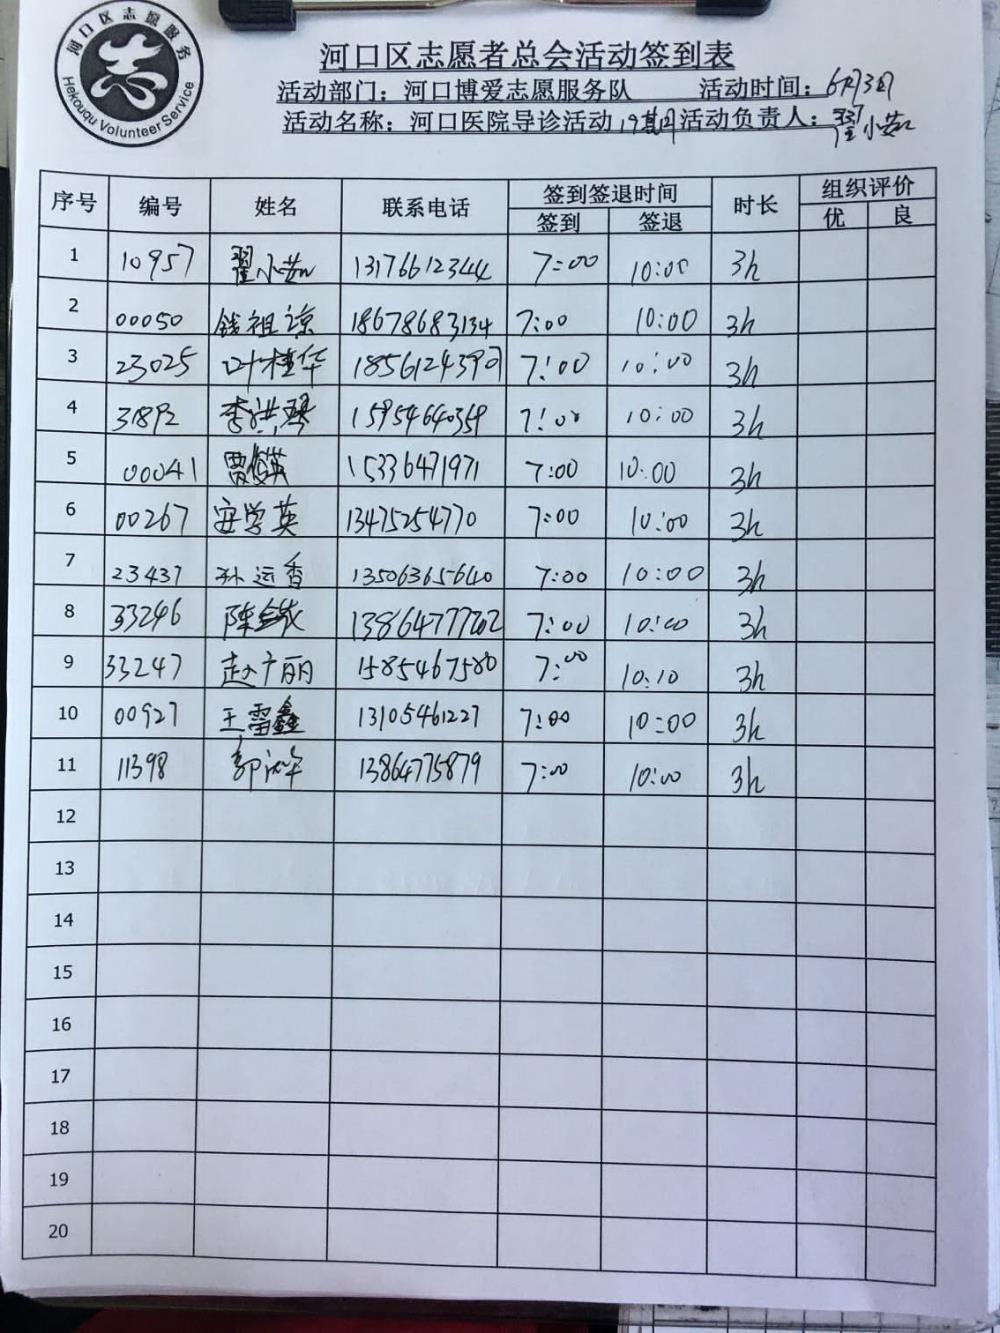 河口区志愿服务
Hekouqu Volunteer Service
河口区志愿者总会活动签到表
活动部门：河口博爱志愿服务队 活动时间：6月3日
活动名称：河口医院导诊活动 活动负责人：翟小茹
序号 编号 姓名 联系电话 签到签退时间 时长 组织评价
签到 签退 优 良
1 10957 翟小茹 13176612344 7:00 10:00 3h
2 00050 钱祖谅 18678683134 7:00 10:00 3h
3 23025 叶桂华 18561243907 7:00 10:00 3h
4 31892 李洪琴 15954640359 7:00 10:00 3h
5 00041 15336471971 7:00 10:00 3h
6 00267 安学英 13475254770 7:00 10:00 3h
7 23437 孙远香 13506365640 7:00 10:00 3h
8 33246 陈 13864777202 7:00 10:00 3h
9 33247 赵广丽 1585467580 7:00 10:10 3h
10 00927 王雷鑫 13105461227 7:00 10:00 3h
11 11398 郭 13864775879 7:00 10:00 3h
12
13
14
15
16
17
18
19
20